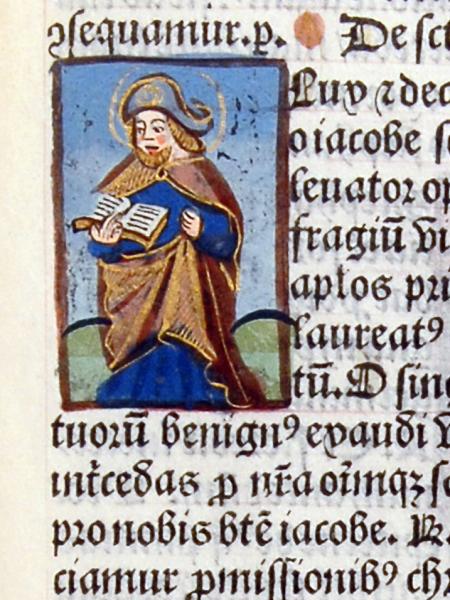 ↄſequamur.p. De ſct
Lux ⁊ dec
o iacobe ſ
ſeuator op
fragiū vi
aplos pri
laureatꝰ
tū. O ſing
tuorū benignꝰ exaudi v
int̄cedas ꝓ nr̄a oīmqꝫ ſc
pro nobis btē iacobe. R.
ciamur ꝓmiſſionibꝰ chr